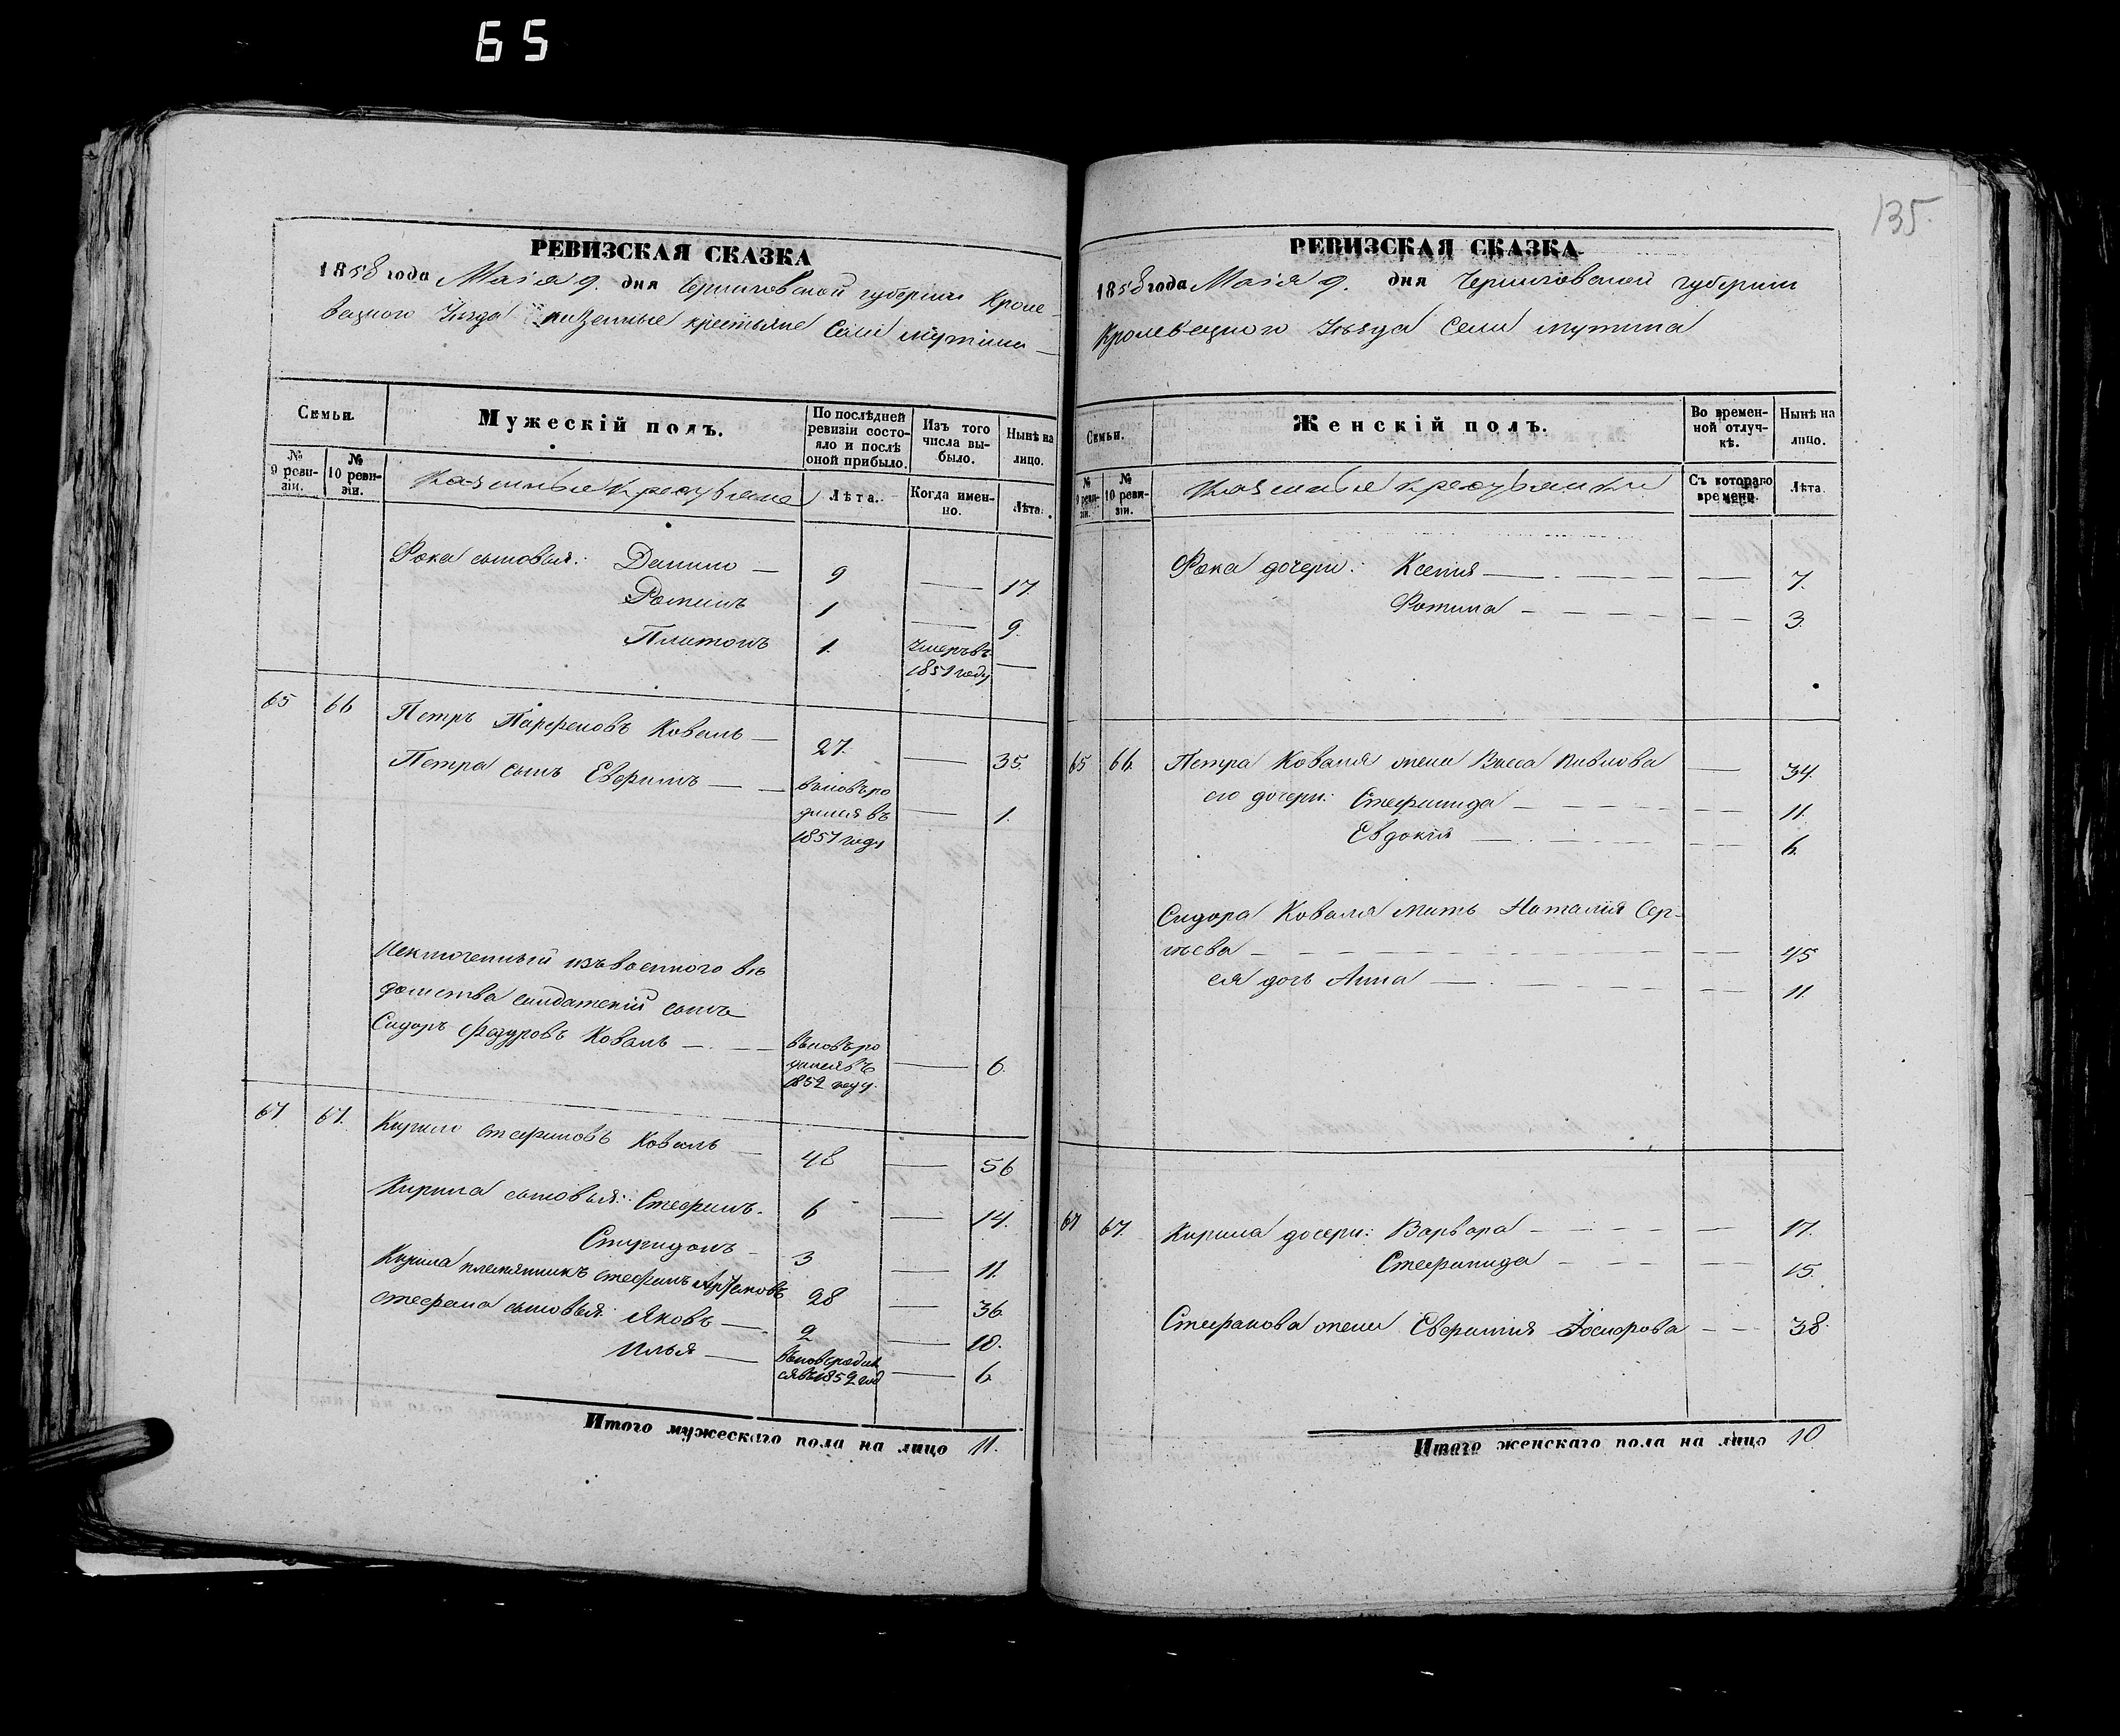 65
135.
РЕВИЗСКАЯ СКАЗКА
1858 года Маія 9. дня Черниговской губерніи Кроле-
вецкого Уѣзда казенные крестьяне Села Мутина
Семьи.
Мужескій полъ.
По послѣдней ревизіи состо-яло и послѣ оной прибыло.
Изъ того числа вы-было.
Нынѣ на лицо.
№ 9 реви-зіи.
№ 10 реви-зіи.
Казенные крестьяне
Лѣта.
Когда имен-но.
Лѣта.
Фока сыновья: Данило — 9 — 17.
Фотий 1 — 9.
Платонъ 1. умеръ въ —
1851 году
65 66 Петръ Парфеновъ Коваль — 27. — 35.
Петра сынъ Евфимъ — — вновь ро
дился въ — 1.
1857 году
Исключенный изъ военного вѣ
домства солдатскій сынъ
Сидоръ Федоровъ Коваль — — вновь ро
дился въ — 6.
1852 году.
67. 67. Кирило Стефановъ Коваль — 48 — 56
Кирила сыновья: Стефанъ. 6 — 14.
Спиридонъ — 3 — 11.
Кирила племянникъ Стефанъ 28 — 36.
Стефана сыновья: Яковъ — 2 — 10.
Илья — вновь родил
ся въ 1852 год — 6
Итого мужескаго пола на лицо 11.
РЕВИЗСКАЯ СКАЗКА.
1858 года Маія 9. дня Черниговской губерніи
Кролевецкого Уѣзда Села Мутина
Семьи.
Женскій полъ.
Во времен-ной отлуч-кѣ.
Нынѣ на лицо.
№ 9 реви-зіи.
№ 10 реви-зіи.
Казенные крестьянки
Съ котораго времени.
Лѣта.
Фока дочери: Ксенія — — 7.
Фотина — — 3.
65 66. Петра Коваля жена Васса Павлова — 34.
его дочери: Стефанида — — 11.
Евдокія — — 6.
Сидора Коваля мать Наталія Сер-
гѣева — — 45
ея дочь Анна — — 11.
67 67. Кирила дочери: Варвара — — 17.
Стефанида — — 15.
Стефанова жена Евфимія — — 38.
Итого женскаго пола на лицо 10